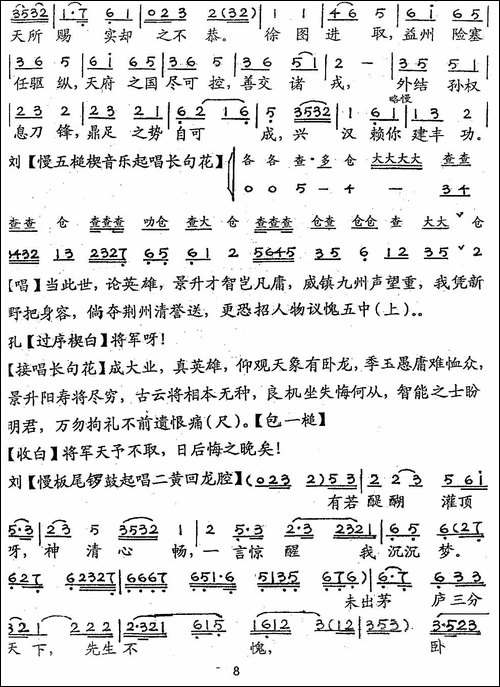 3532 | 1·7 6 1 | 0 2 3 2(32) | 1 1 | 4 6 5 | 6 i 6 5 |
天所 赐 实却 之不 恭。 徐 图 进 取，益州 险塞
3 6 5 | 3 6 5 | 6 i 6 5 | 3 6 5 | 3 6 5 1 | 2 - | 3 5 5 1 |
任驱 纵，天府 之国 尽可 控，善交 诸 戎， 外结 孙权
2 3 2 | 2 3 2 1 | 6 2 1 6 | 5 3532 | 1 6 1 | 1 3 2 |
略慢
息刀 锋，鼎足 之势 自可 成，兴 汉 赖你 建丰 功。
刘【慢五槌楔音乐起唱长句花】 各 各 查·多 仓 大大大大 查查
0 0 5 - 4 - 3 4
查查 仓 查查查 叻仓 查大 仓 查查查 仓查 仓仓 查 大大 仓
3432 1 3 2327 6 5 6 1 2 5645 3 5 6 1 2 3 5 2
【唱】当此世，论英雄，景升才智岂凡庸，威镇九州声望重，我凭新
野把身容，倘夺荆州清誉送，更恐招人物议愧五中（上）。。
孔【过序楔白】将军呀！
【接唱长句花】成大业，真英雄，仰观天象有卧龙，季玉愚庸难恤众，
景升阳寿将尽穷，古云将相本无种，良机坐失悔何从，智能之士盼
明君，万勿拘礼不前遗恨痛（尺）。【包一槌】
【收白】将军天予不取，日后悔之晚矣！
刘【慢板尾锣鼓起唱二黄回龙腔】(0 2 3 2)5 3 | 2 2 3 5 6 i |
有若 醍醐 灌顶
5·3 | 2 3 5 3532 | 1 2 | 5·3 2·3 2321 | 6 5 6(27 |
呀，神 清 心 畅，一 言惊 醒 我 沉沉 梦。
627 62327 | 6667 651·6 5135 676) | 6·7 6 3 3 |
未出茅 庐三分
3 2 1 2 | 2·321 615 | 1612 3(12 | 353) 3·523 |
天 下，先生不 愧， 卧
8